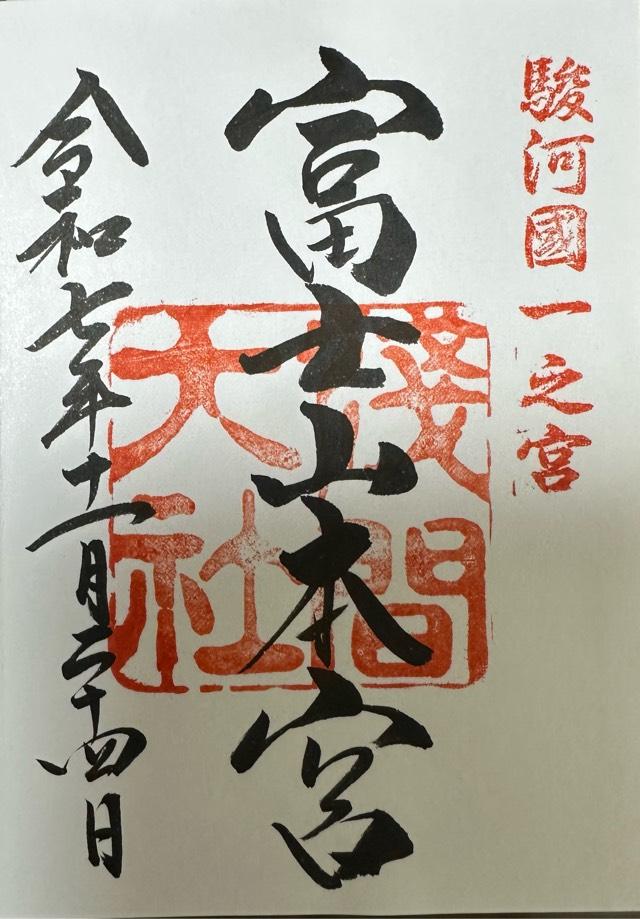 駿河國一之宮
富士山本宮
淺間大社
令和七年十一月二十四日